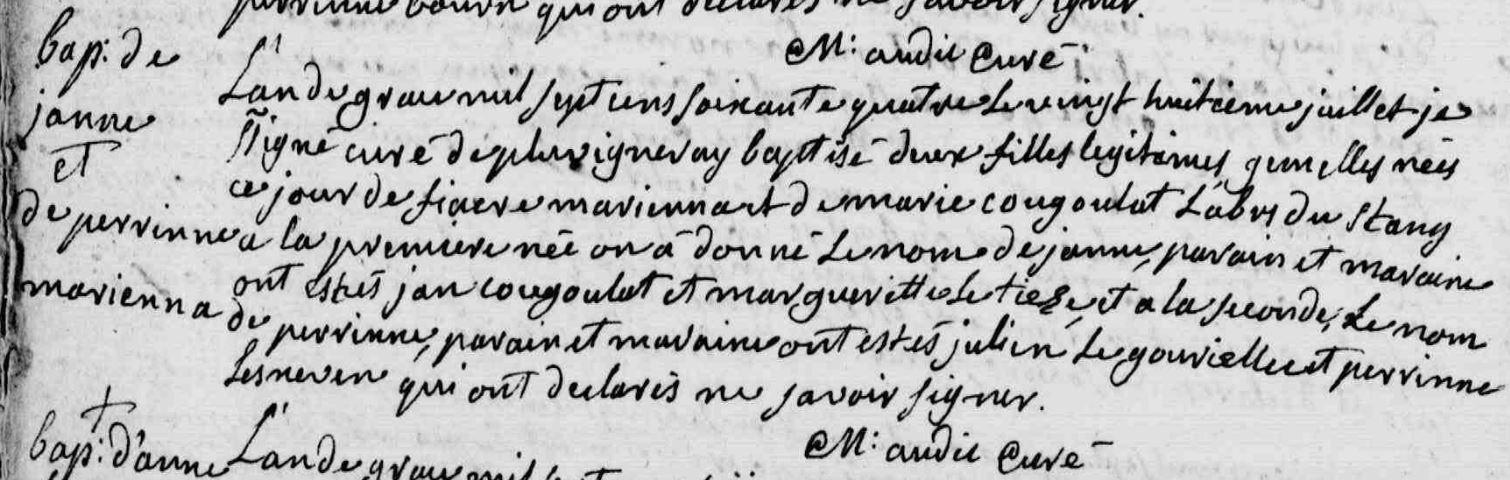 qui ont declarés ne savoir signer.
M: audic Curé
bap: de
janne
et
de perrinne
marienna
L'an de grace mil sept cens soixante quatre Le vingt huitieme juillet je
ssigné curé de pluvigner ay baptisé deux filles legitimes gemelles nées
ce jour de fiacre mariennat et de marie cougoulat
a la premiere née on a donné Le nom de janne, parain et maraine
ont estés jan cougoulat et margueritte et a la seconde, Le nom
de perrinne, parain et maraine ont estés julien Le gourielle et perrinne
Lesneven qui ont declarés ne savoir signer.
M: audic Curé
bap: d'anne
L'an de grace mil